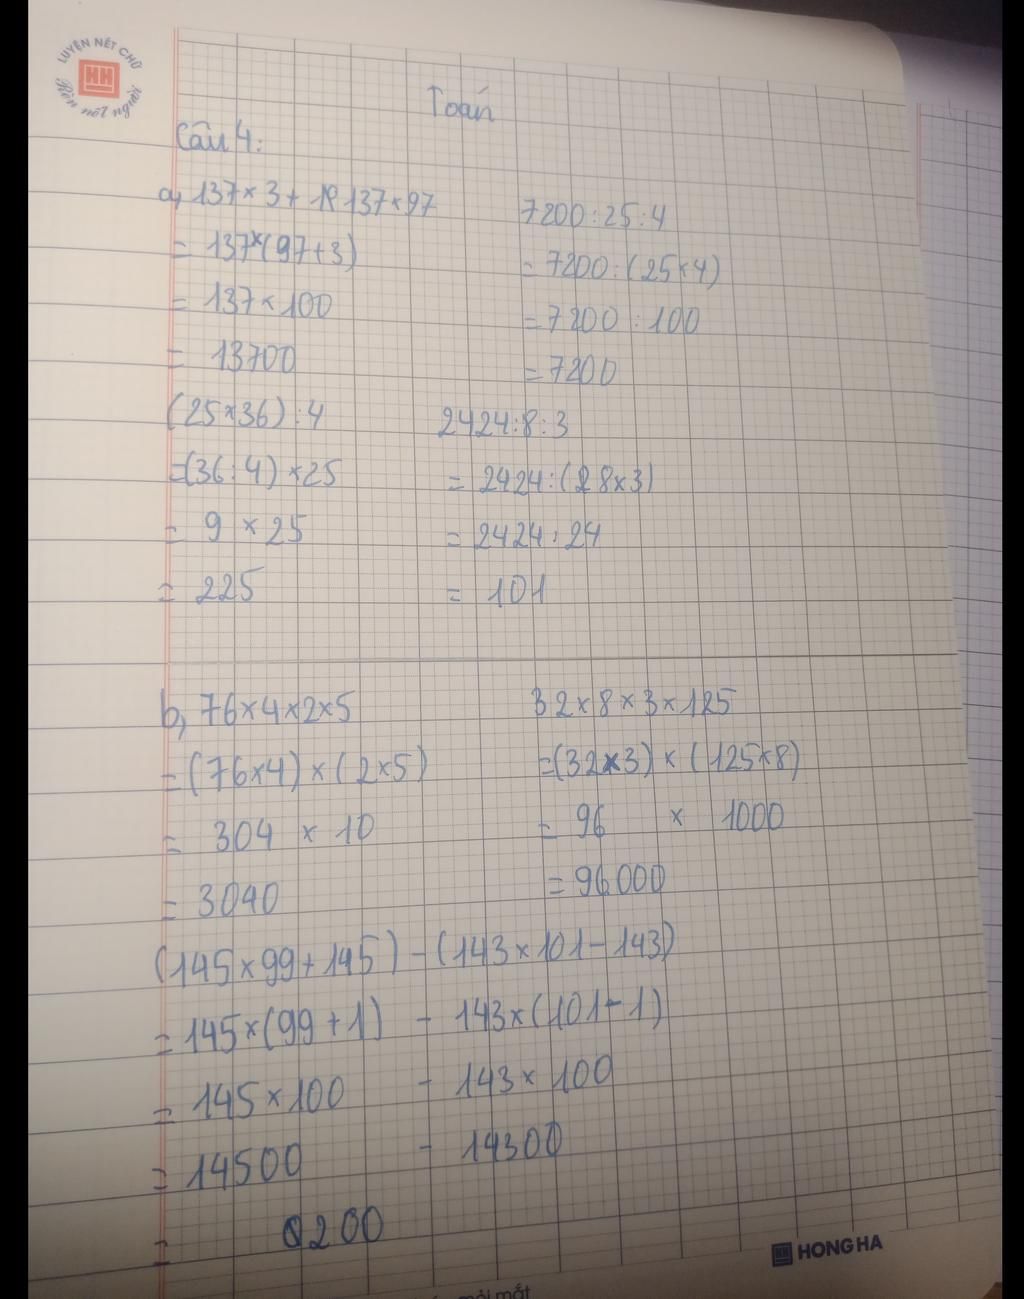 LUYỆN NÉT CHỮ
HH
Rèn nết người
Toán
Câu 4:
a, 137 × 3 + 137 × 97
= 137 × (97 + 3)
= 137 × 100
= 13700
7200 : 25 : 4
= 7200 : (25 × 4)
= 7200 : 100
= 7200
(25 × 36) : 4
= (36 : 4) × 25
= 9 × 25
= 225
2424 : 8 : 3
= 2424 : (8 × 3)
= 2424 : 24
= 101
b, 76 × 4 × 2 × 5
= (76 × 4) × (2 × 5)
= 304 × 10
= 3040
32 × 8 × 3 × 125
= (32 × 3) × (125 × 8)
= 96 × 1000
= 96000
(145 × 99 + 145) - (143 × 101 - 143)
= 145 × (99 + 1) - 143 × (101 - 1)
= 145 × 100 - 143 × 100
= 14500 - 14300
= 200
HH HONG HA
mắt